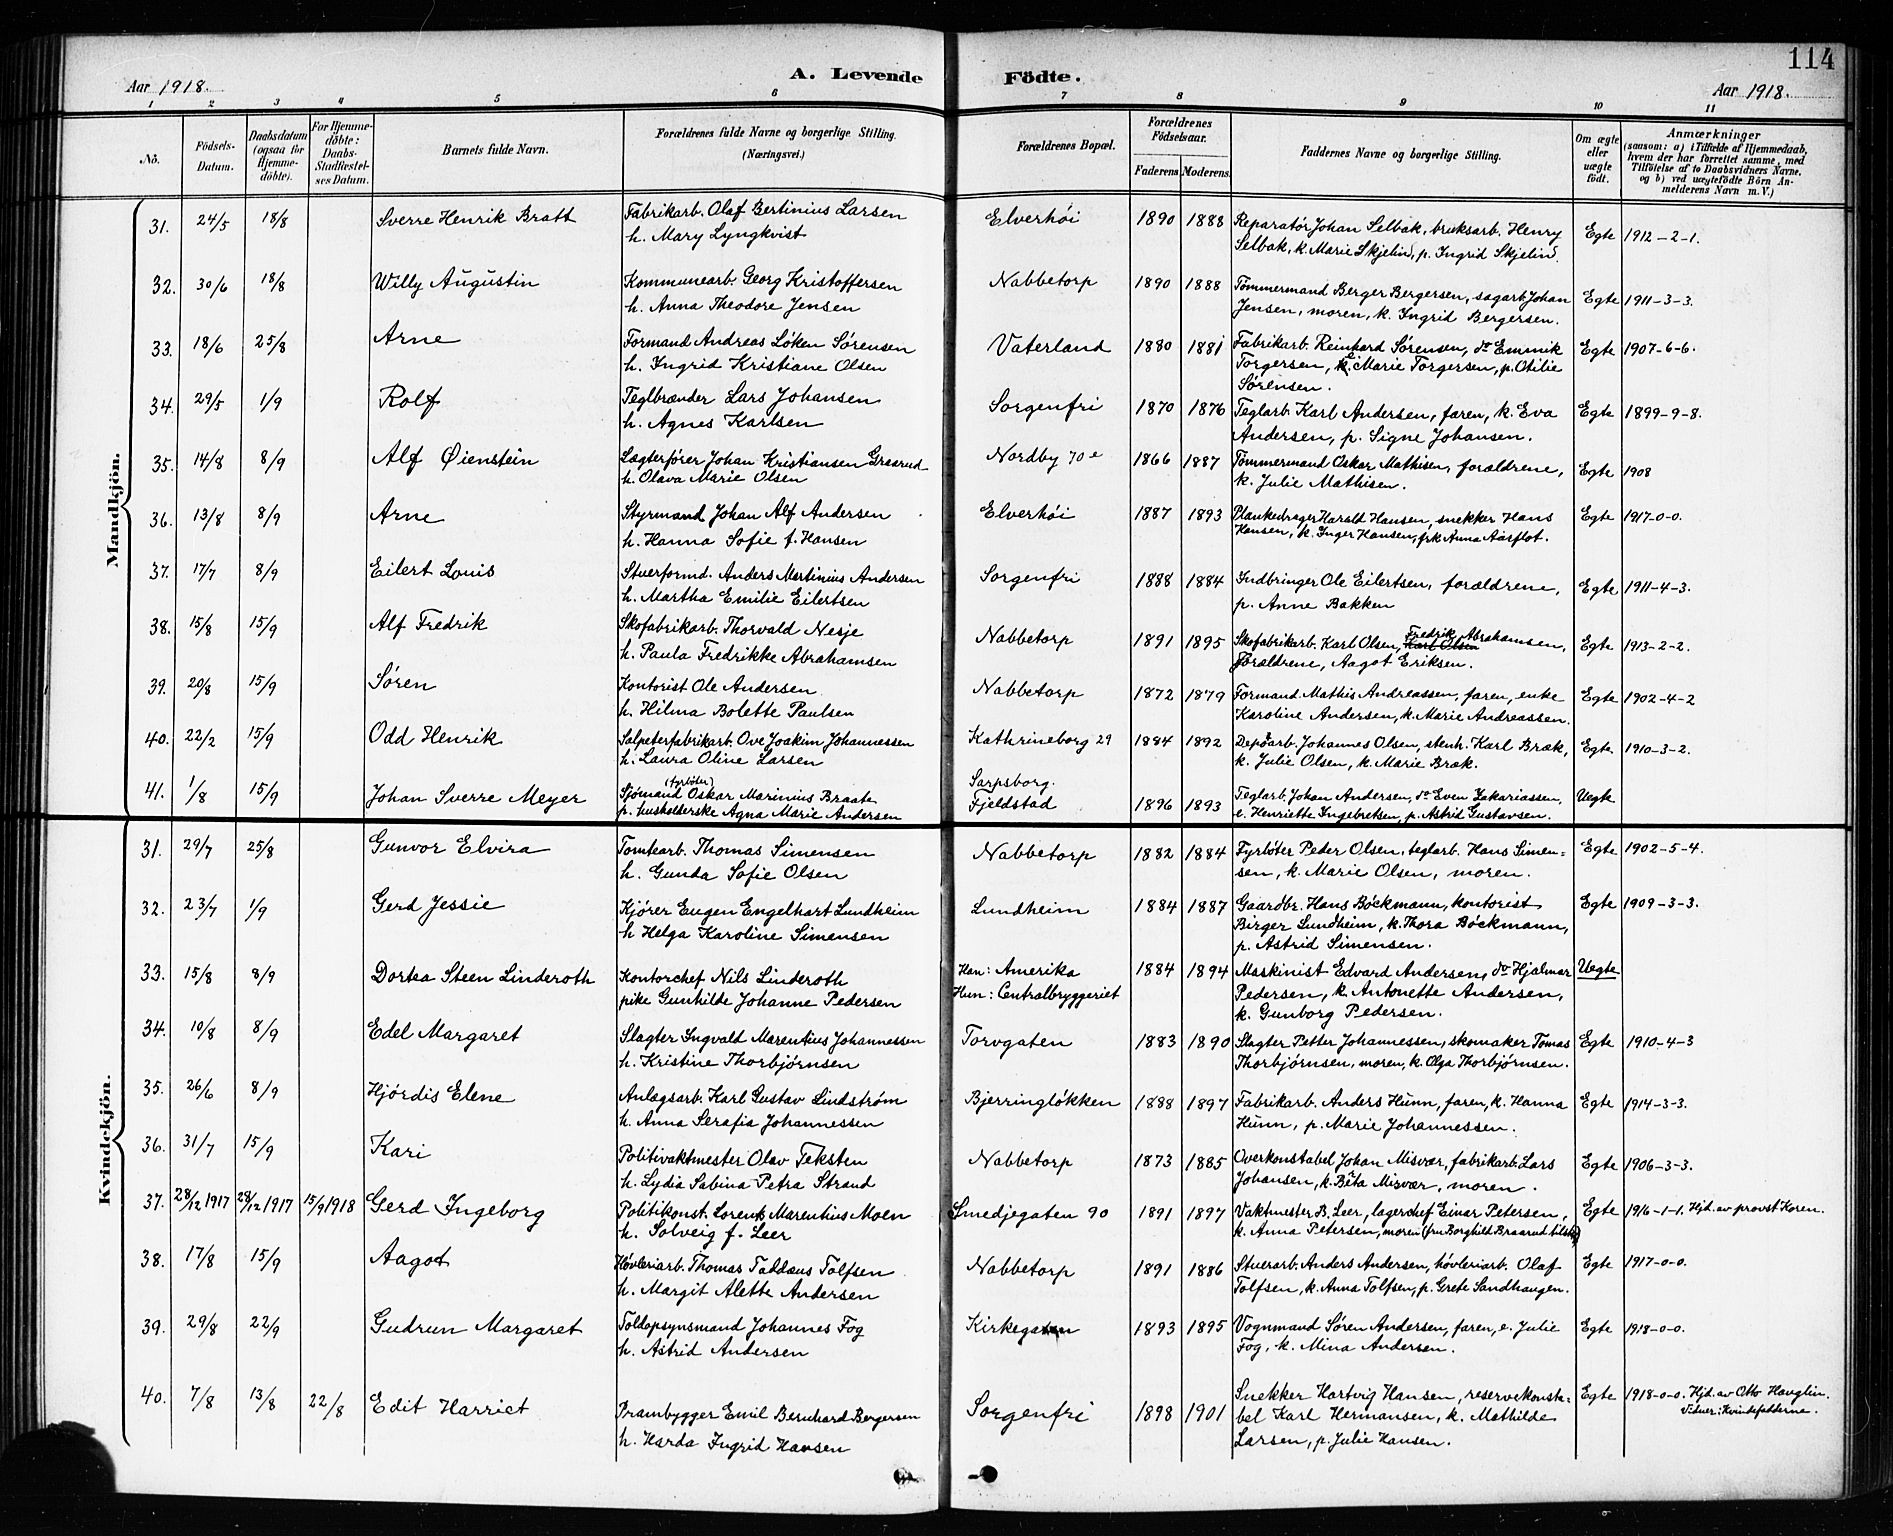 114
Aar 1918.
A. Levende Födte.
Aar 1918.
1 2 3 4 5 6 7 8 9 10 11
No.
Födsels-Datum.
Daabsdatum (ogsaa for Hjemme-döbte).
For Hjemme-döbte: Daabs-Stadfæstel-ses Datum.
Barnets fulde Navn.
Forældrenes fulde Navne og borgerlige Stilling. (Næringsvei.)
Forældrenes Bopæl.
Forældrenes Födselsaar.
Faderens. Moderens.
Faddernes Navne og borgerlige Stilling.
Om ægte eller uægte födt.
Anmærkninger
(saasom: a) i Tilfælde af Hjemmedaab, hvem der har forrettet samme, med Tilföielse af to Daabsvidners Navne, og b) ved uægtefödte Börn An-melderens Navn m. V.)
Mandkjön.
31. 24/5 18/8 Sverre Henrik Bratt Fabrikarb. Olaf Bertinius Larsen Elverhöi 1890 1888 Reparatør Johan Selbak, bruksarb. Henry Egte 1912-2-1.
h. Mary Lyngkvist Selbak, k. Marie Skjelin, p. Ingrid Skjelin.
32. 30/6 18/8 Willy Augustin Kommunearb. Georg Kristoffersen Nabbetorp 1890 1888 Tömmermand Berger Bergersen, sagarb. Johan Egte 1911-3-3.
h. Anna Theodore Jensen Jensen, moren, k. Ingrid Bergersen.
33. 18/6 25/8 Arne Formand Andreas Löken Sörensen Vaterland 1880 1881 Fabrikarb. Reinhard Sörensen, do Emmik Egte 1907-6-6.
h. Ingrid Kristiane Olsen Torgersen, k. Marie Torgersen, p. Otilie
Sörensen.
34. 29/5 1/9 Rolf Teglbrænder Lars Johansen Sorgenfri 1870 1876 Teglarb. Karl Andersen, faren, k. Eva Egte 1899-9-8.
h. Agnes Karlsen Andersen, p. Signe Johansen.
35. 14/8 8/9 Alf Øienstein Lægterfører Johan Kristiansen Grasrud Nordby 70e 1866 1887 Tömmermand Oskar Mathisen, forældrene, Egte 1908
h. Olava Marie Olsen k. Julie Mathisen.
36. 13/8 8/9 Arne Styrmand Johan Alf Andersen Elverhöi 1887 1893 Plankedrager Harald Hansen, snekker Hans Egte 1917-0-0.
h. Hanna Sofie f. Hansen Hansen, k. Inger Hansen, frk Anna Aasflot.
37. 17/7 8/9 Eilert Louis Stuerformd. Anders Martinius Andersen Sorgenfri 1888 1884 Indbringer Ole Eilertsen, forældrene, Egte 1911-4-3.
h. Martha Emilie Eilertsen p. Anne Bakken
38. 15/8 15/9 Alf Fredrik Skofabrikarb. Thorvald Nesje Nabbetorp 1891 1895 Skofabrikarb. Karl Olsen, Karl Olsen Fredrik Abrahamsen, Egte 1913-2-2.
h. Paula Fredrikke Abrahamsen forældrene, Aagot Eriksen.
39. 20/8 15/9 Sören Kontorist Ole Andersen Nabbetorp 1872 1879 Formand Mathis Andreassen, faren, enke Egte 1902-4-2
h. Hilma Bolette Paulsen Karoline Andersen, k. Marie Andreassen.
40. 22/2 15/9 Odd Henrik Salpeterfabrikarb. Ove Joakim Johannessen Kathrineborg 29 1884 1892 Depôarb. Johannes Olsen, stenh. Karl Bræk, Egte 1910-3-2.
h. Laura Oline Larsen k. Julie Olsen, k. Marie Bræk.
41. 1/8 15/9 Johan Sverre Meyer Sjömand (fyrböter) Oskar Marinius Braate Sarpsborg. Fjeldstad 1896 1893 Teglarb. Johan Andersen, do Even Zakariassen, Uegte
p. husholderske Agna Marie Andersen e. Henriette Ingebretsen, p. Astrid Gustavsen.
Kvindekjön.
31. 29/7 25/8 Gunvor Elvira Tomtearb. Thomas Simensen Nabbetorp 1882 1884 Fyrböter Peder Olsen, teglarb. Hans Simen- Egte 1902-5-4.
h. Gunda Sofie Olsen sen, k. Marie Olsen, moren.
32. 23/7 1/9 Gerd Jessie Kjörer Eugen Engelhart Lundheim Lundheim 1884 1887 Gaardbr. Hans Böckmann, kontorist Egte 1909-3-3.
h Helga Karoline Simensen Birger Lundheim, k. Thora Böckmann,
p. Astrid Simensen.
33. 15/8 8/9 Dortea Steen Linderoth Kontorchef Nils Linderoth Han: Amerika 1884 1894 Maskinist Edvard Andersen, do Hjalmar Uegte
pike Gunhilde Johanne Pedersen Hun: Centralbryggeriet Pedersen, k. Antonette Andersen,
k. Gunborg Pedersen.
34. 10/8 8/9 Edel Margaret Slagter Ingvald Marentius Johannessen Torvgaten 1883 1890 Slagter Petter Johannessen, skomaker Tomas Egte 1910-4-3
h. Kristine Thorbjörnsen Thorbjörnsen, moren, k. Olga Thorbjörnsen.
35. 26/6 8/9 Hjördis Elene Anlægsarb. Karl Gustav Lindström Bjerringlökken 1888 1897 Fabrikarb. Anders Hunn, faren, k. Hanna Egte 1914-3-3.
h. Anna Serafia Johannessen Hunn, p. Marie Johannessen.
36. 31/7 15/9 Kari Politivaktmester Olav Teksten Nabbetorp 1873 1885 Overkonstabel Johan Misvær, fabrikarb. Lars Egte 1906-3-3.
h. Lydia Sabina Petra Strand Johansen, k. Bêta Misvær, moren.
37. 28/12 1917 28/12 1917 15/9 1918 Gerd Ingeborg Politikonst. Lorents Marentius Moen Smedjegaten 90 1891 1897 Vaktmester B. Leer, lagerchef Einar Petersen, Egte 1916-1-1. Hjd. av provst Koren.
h. Solveig f. Leer k. Anna Petersen, moren (fru Borghild Braarud tilst.)
38. 17/8 15/9 Aagot Hövleriarb. Thomas Taddæus Tolfsen Nabbetorp 1891 1886 Stuerarb. Anders Andersen, hövleriarb. Olaf Egte 1917-0-0.
h. Margit Alette Andersen Tolfsen, k. Anna Tolfsen, p. Grete Sandhaugen.
39. 29/8 22/9 Gudrun Margaret Toldopsynsmand Johannes Fog Kirkegaten 1893 1895 Vognmand Sören Andersen, faren, e. Julie Egte 1918-0-0.
h. Astrid Andersen Fog, k. Mina Andersen.
40. 7/8 13/8 22/8 Edit Harriet Prambygger Emil Bernhard Bergersen Sorgenfri 1898 1901 Snekker Hartvig Hansen, reservekonsta- Egte 1918-0-0. Hjd. av Otto Hauglin.
h. Harda Ingrid Hansen bel Karl Hermansen, k. Mathilde Vidner: Kvindefadderne.
Larsen, p. Julie Hansen.